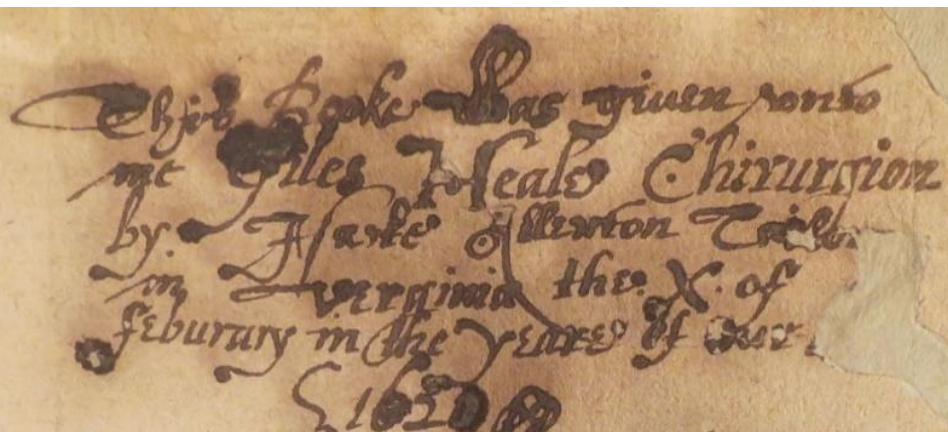 This Booke Was given vnto
me Giles Heale Chirurgion
by Isacke Allerton Tailor
in Verginia the. X. of
feburary in the yeare of our
1620